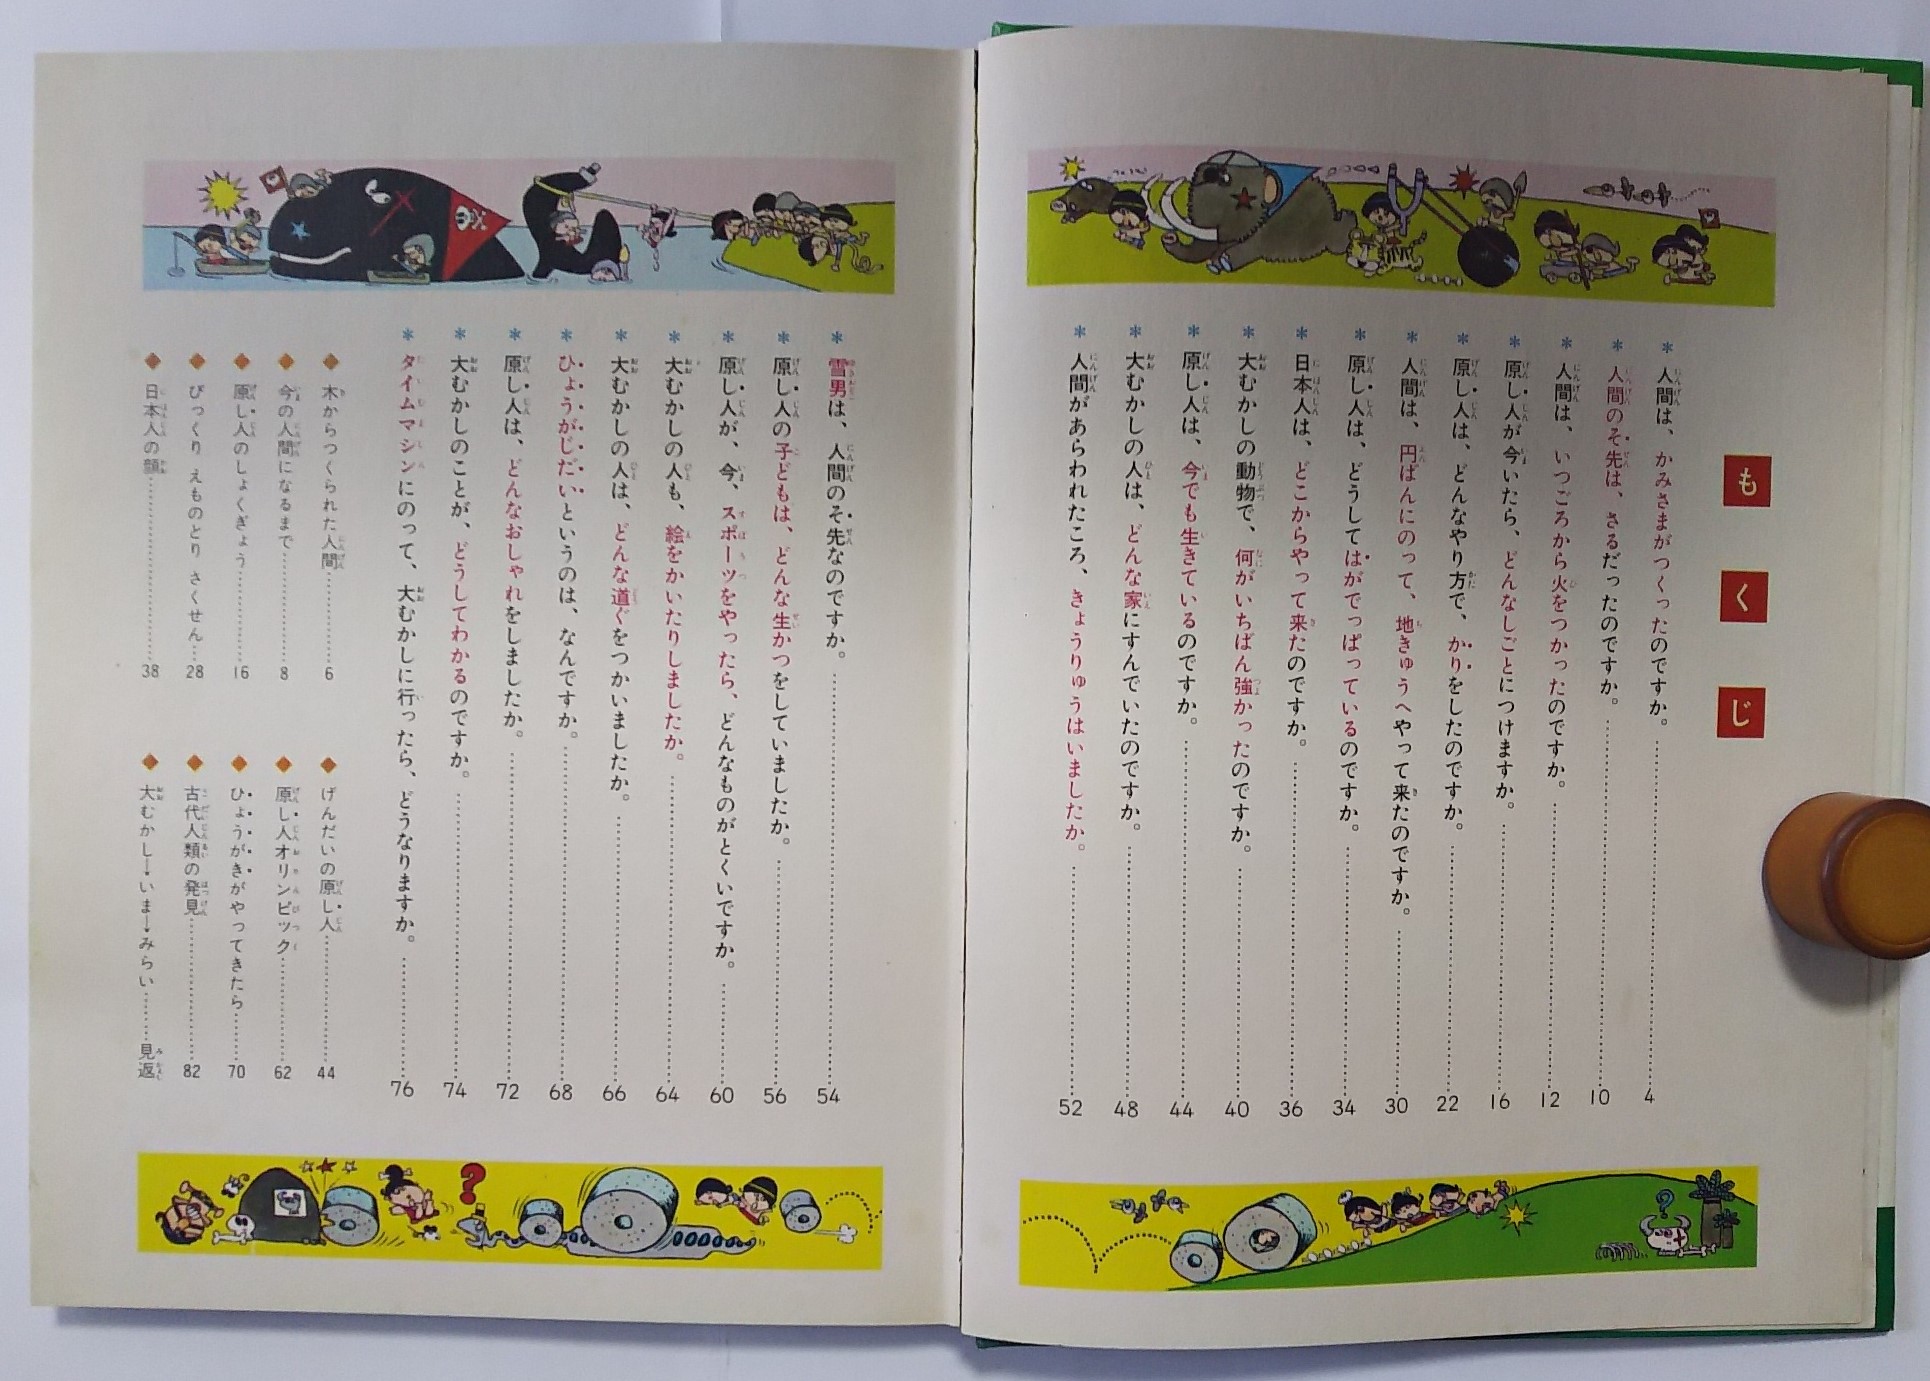 もくじ
人間は、かみさまがつくったのですか。 4
人間のそ先は、さるだったのですか。 10
人間は、いつごろから火をつかったのですか。 12
原し人が今いたら、どんなしごとにつけますか。 16
原し人は、どんなやり方で、かりをしたのですか。 22
人間は、円ばんにのって、地きゅうへやって来たのですか。 30
原し人は、どうしてはがでっぱっているのですか。 34
日本人は、どこからやって来たのですか。 36
大むかしの動物で、何がいちばん強かったのですか。 40
原し人は、今でも生きているのですか。 44
大むかしの人は、どんな家にすんでいたのですか。 48
人間があらわれたころ、きょうりゅうはいましたか。 52
雪男は、人間のそ先なのですか。 54
原し人の子どもは、どんな生かつをしていましたか。 56
原し人が、今、スポーツをやったら、どんなものがとくいですか。 60
大むかしの人も、絵をかいたりしましたか。 64
大むかしの人は、どんな道ぐをつかいましたか。 66
ひょうがじだいというのは、なんですか。 68
原し人は、どんなおしゃれをしましたか。 72
大むかしのことが、どうしてわかるのですか。 74
タイムマシンにのって、大むかしに行ったら、どうなりますか。 76
木からつくられた人間 6
今の人間になるまで 8
原し人のしょくぎょう 16
びっくり えものとり さくせん 28
日本人の顔 38
げんだいの原し人 44
原し人オリンピック 62
ひょうがきがやってきたら 70
古代人類の発見 82
大むかし→いま→みらい 見返